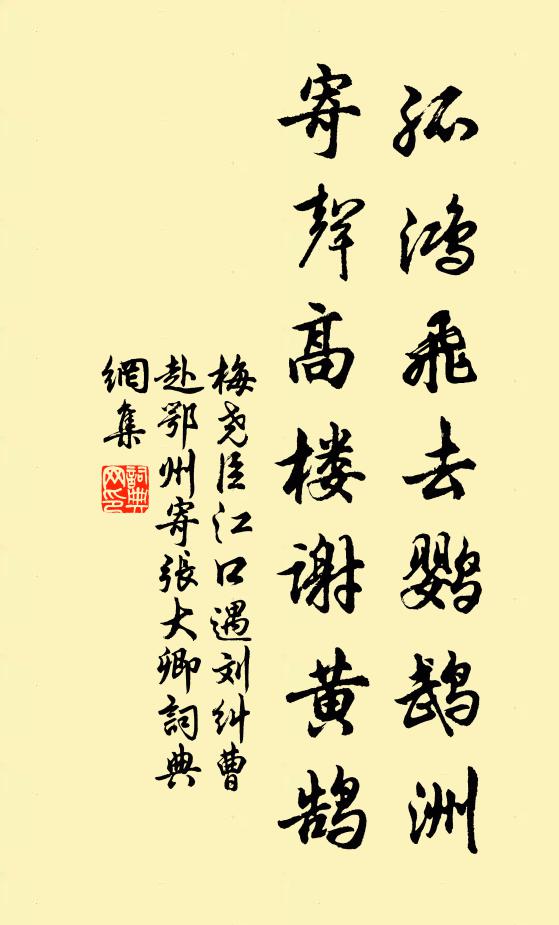 孤鸿飛去鹦鹉洲
寄聲高楼谢黄鹄
梅尧臣江口遇刘纠曹
赴鄂州寄張大卿詞典
網集
詞典网印